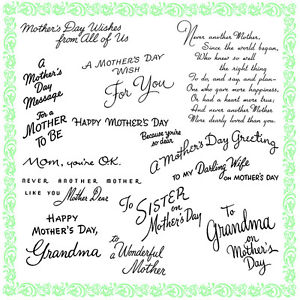 Mother's Day Wishes
from All of Us
Never another Mother,
Since the world began,
Who knew so well
the right thing
To do, and say and plan—
One who gave more happiness,
Or had a heart more true;
And never another Mother
More dearly loved than you.
A
Mother's
Day
Message
A MOTHER'S DAY
WISH
For You
For a
MOTHER
TO BE
HAPPY MOTHER'S DAY
Because you're
so dear
A Mother's Day Greeting
Mom, you're OK.
TO MY Darling Wife
ON MOTHER'S DAY
NEVER ANOTHER MOTHER
LIKE YOU Mother Dear
TO SISTER
on
Mother's Day
HAPPY
MOTHER'S DAY,
Grandma
to
a Wonderful
Mother
To
Grandma
on
Mother's
Day